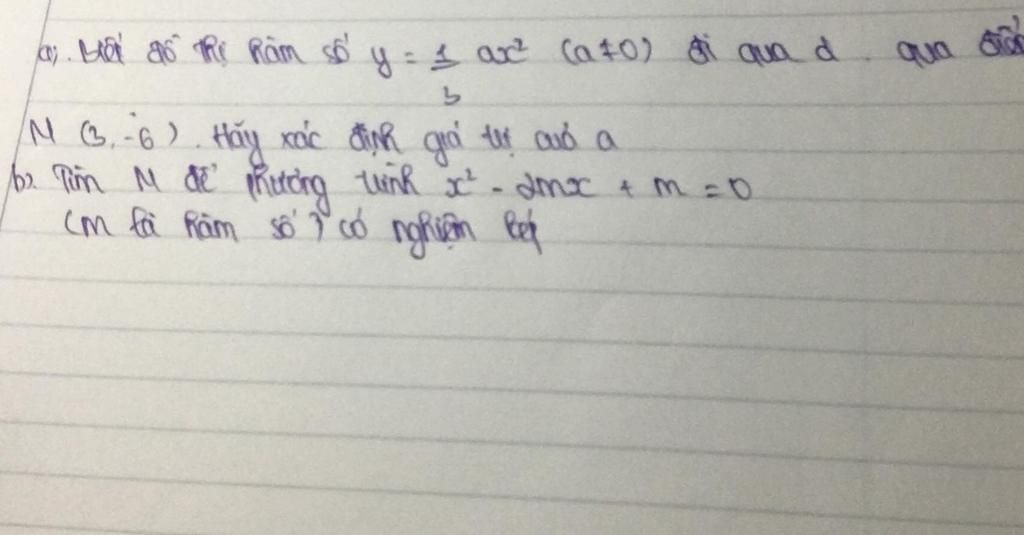 a). Biết đồ thị hàm số y = 1/3 ax² (a≠0) đi qua d . qua điểm
M (3, -6). Hãy xác định giá trị của a
b). Tìm M để phương trình x² - 2mx + m = 0
(m là hàm số) có nghiệm kép